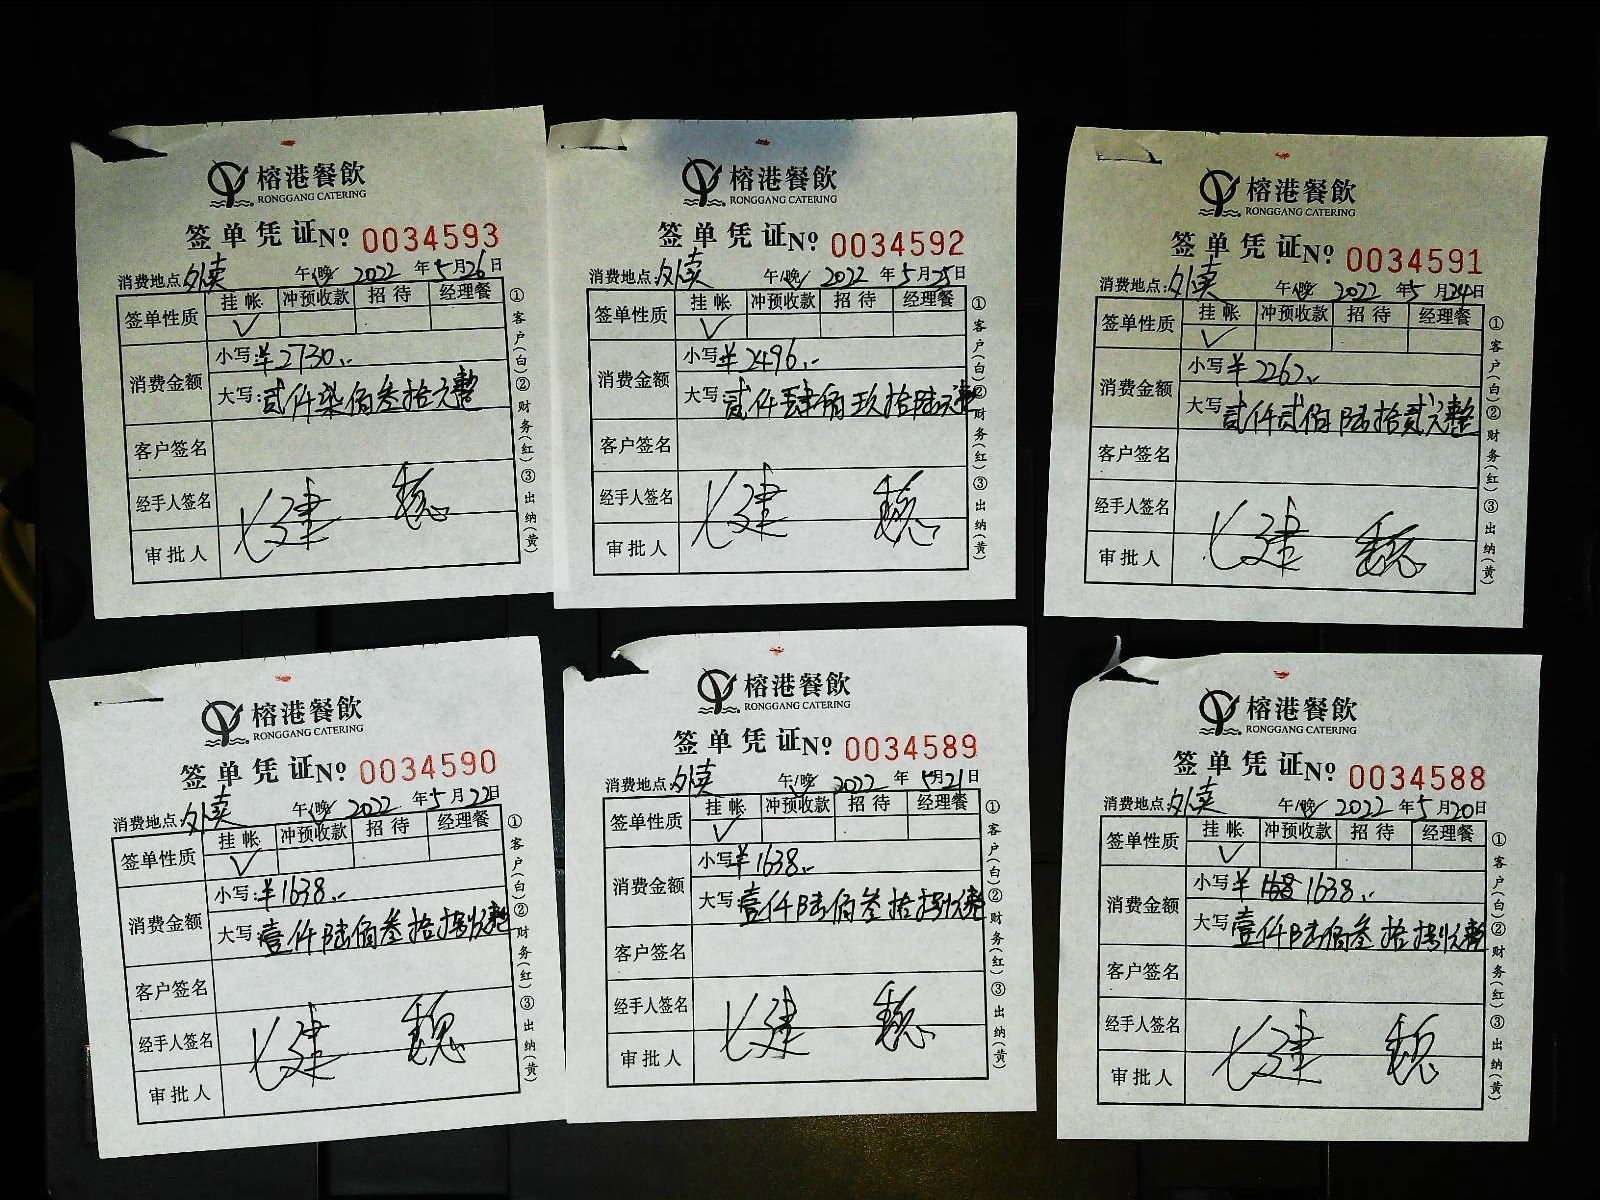 榕港餐飲
RONGGANG CATERING
签单凭证№ 0034593
消费地点:外卖 午/晚√ 2022年5月26日
挂帐 冲预收款 招待 经理餐
签单性质 √
消费金额 小写:¥2730.-
大写:贰仟柒佰叁拾元整
客户签名
经手人签名
审批人
①客户(白)②财务(红)③出纳(黄)
榕港餐飲
RONGGANG CATERING
签单凭证№ 0034592
消费地点:外卖 午/晚√ 2022年5月25日
挂帐 冲预收款 招待 经理餐
签单性质 √
消费金额 小写:¥2496.-
大写:贰仟肆佰玖拾陆元整
客户签名
经手人签名
审批人
①客户(白)②财务(红)③出纳(黄)
榕港餐飲
RONGGANG CATERING
签单凭证№ 0034591
消费地点:外卖 午/晚√ 2022年5月24日
挂帐 冲预收款 招待 经理餐
签单性质 √
消费金额 小写:¥2262.-
大写:贰仟贰佰陆拾贰元整
客户签名
经手人签名
审批人
①客户(白)②财务(红)③出纳(黄)
榕港餐飲
RONGGANG CATERING
签单凭证№ 0034590
消费地点:外卖 午/晚√ 2022年5月22日
挂帐 冲预收款 招待 经理餐
签单性质 √
消费金额 小写:¥1638.-
大写:壹仟陆佰叁拾捌元整
客户签名
经手人签名
审批人
①客户(白)②财务(红)③出纳(黄)
榕港餐飲
RONGGANG CATERING
签单凭证№ 0034589
消费地点:外卖 午/晚√ 2022年5月21日
挂帐 冲预收款 招待 经理餐
签单性质 √
消费金额 小写:¥1638.-
大写:壹仟陆佰叁拾捌元整
客户签名
经手人签名
审批人
①客户(白)②财务(红)③出纳(黄)
榕港餐飲
RONGGANG CATERING
签单凭证№ 0034588
消费地点:外卖 午/晚√ 2022年5月20日
挂帐 冲预收款 招待 经理餐
签单性质 √
消费金额 小写:¥1638.-
大写:壹仟陆佰叁拾捌元整
客户签名
经手人签名
审批人
①客户(白)②财务(红)③出纳(黄)